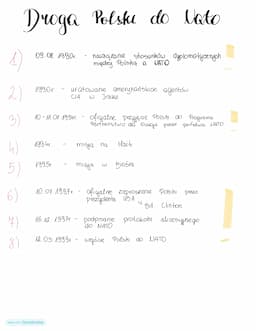 Droga Polski do Nato
1) 09.08 1990r - nawiązanie stosunków dyplomatycznych
między Polską a NATO
2) 1990r - uratowanie amerykańskich agentów
CIA w Iraku
3) 10-11.01 1994r - oficjalne przyjęcie Polski do Programu
Partnerstwo dla Pokoju przez państwa NATO
4) 1994r - misja na Haiti
5) 1995r - misja w Bośni
6) 10.07 1997r - oficjalne zaproszenie Polski przez
prezydenta USA
Bill Clinton
7) 16.12 1997r - podpisanie protokołu akcesyjnego
do NATO
8) 12.03 1999r - wejście Polski do NATO